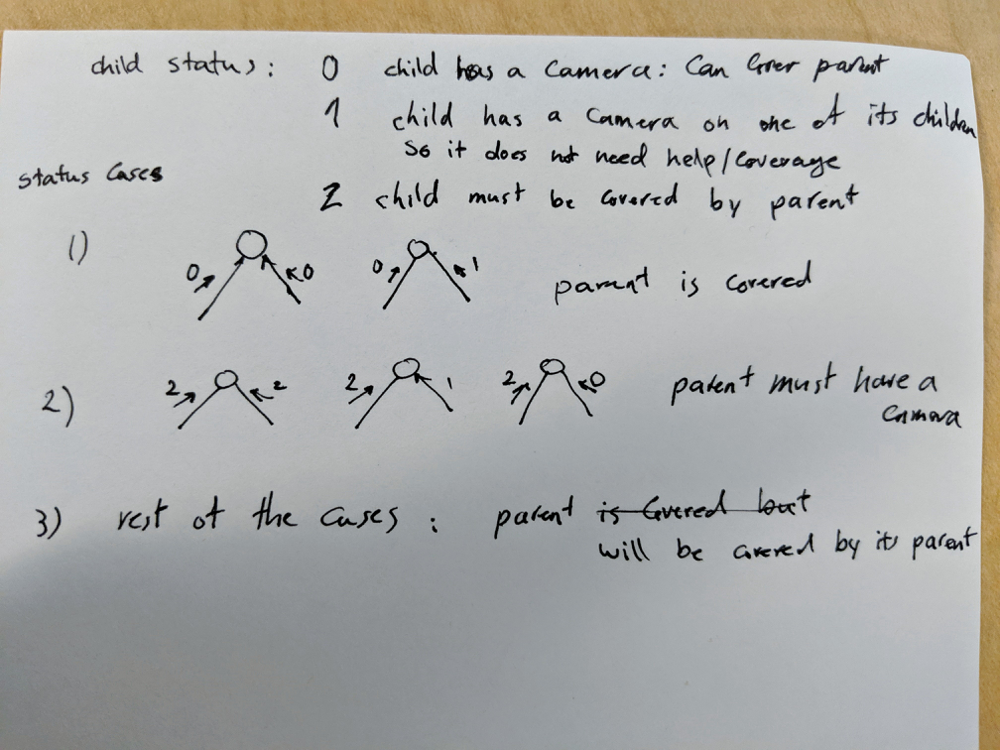 child status: 0 child has a camera: Can cover parent
1 child has a camera on one of its children
So it does not need help/coverage
status Cases
2 child must be covered by parent
1) 0 0 0 1 parent is covered
2) 2 2 2 1 2 0 parent must have a
camera
3) rest of the cases: parent is covered but
will be covered by its parent